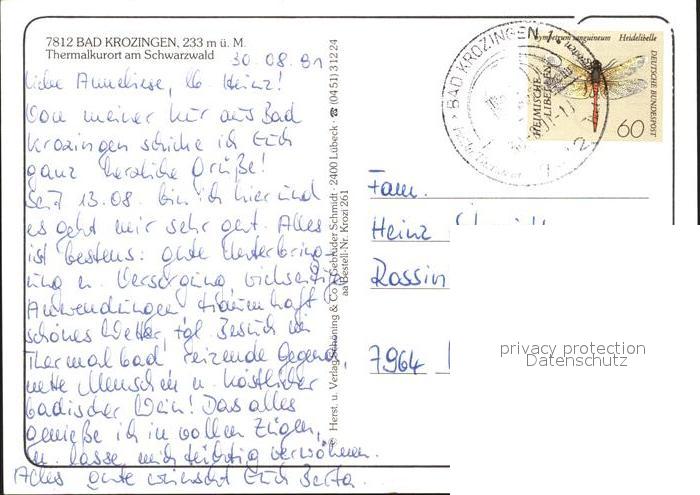 7812 BAD KROZINGEN, 233 m ü. M.
Thermalkurort am Schwarzwald
30.08.91
Liebe Anneliese, lb. Heinz!
Von meiner Kur aus Bad
Krozingen schicke ich Euch
ganz herzliche Grüße!
Seit 13.08. bin ich hier und
es geht mir sehr gut. Alles
ist bestens: gute Unterbring-
ung u. Versorgung, vielseitige
Anwendungen, traumhaft
schönes Wetter, tgl. Besuch im
Thermalbad, reizende Gegend,
nette Menschen u. köstlicher
badischer Wein! Das alles
genieße ich in vollen Zügen,
u. lasse mich tüchtig verwöhnen.
Alles Gute wünscht Euch Berta.
© Herst. u. Verlag Schöning & Co + Gebrüder Schmidt · 2400 Lübeck · ☎ (04 51) 3 12 24
aa Bestell-Nr. Krozi 261
BAD KROZINGEN 1
Sympetrum sanguineum Heidelibelle
HEIMISCHE LIBELLEN
DEUTSCHE BUNDESPOST
60
Fam.
Heinz
Rossin
7964
privacy protection
Datenschutz